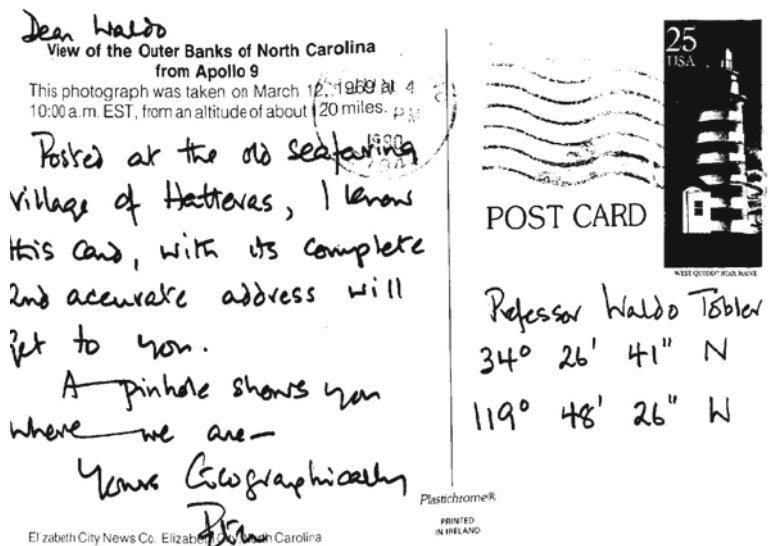 Dear Waldo
View of the Outer Banks of North Carolina
from Apollo 9
This photograph was taken on March 12, 1969 at
10:00 a.m. EST, from an altitude of about 120 miles.
Posted at the old seafaring
village of Hatteras, I know
this card, with its complete
and accurate address will
get to you.
A pinhole shows you
where we are—
Yours Geographically
Elizabeth City News Co. Elizabeth City North Carolina
4
PM
1990
25
USA
WEST QUODDY HEAD, MAINE
POST CARD
Professor Waldo Tobler
34° 26' 41" N
119° 48' 26" W
Plastichrome®
PRINTED
IN IRELAND